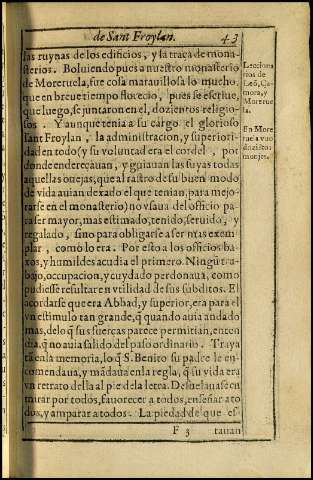 de Sant Froylan. 43
las ruynas de los edificios, y la traça de mona-
sterios. Boluiendo pues a nuestro monasterio
de Moreruela, fue cosa marauillosa lo mucho,
que en breue tiempo florecio, pues se escriue,
que luego, se juntaron en el, dozientos religio-
sos. Y aunque tenia a su cargo el glorioso
sant Froylan, la administracion, y superiori-
dad en todo (y su voluntad era el cordel, por
donde endereçauan, y guiauan las suyas todas
aquellas ouejas, que al rastro de su buen modo
de vida auian dexado el que tenian, para mejo-
rarse en el monasterio) no vsaua del officio pa-
ra ser mayor, mas estimado, tenido, seruido, y
regalado, sino para obligarse a ser mas exem-
plar, como lo era. Por esto a los officios ba-
xos, y humildes acudia el primero. Ningũ tra-
bajo, occupacion, y cuydado perdonaua, como
pudiesse resultar en vtilidad de sus subditos. El
acordarse que era Abbad, y superior, era para el
vn estimulo tan grande, q̃ quando auia andado
mas, delo q̃ sus fuerças parece permitian, enten
dia, q̃ no auia salido del paso ordinario. Traya
tã en la memoria, lo q̃ S. Benito su padre le en-
comendaua, y mãdaua en la regla, q̃ su vida era
vn retrato della al pie de la letra. Desuelauase en
mirar por todos, fauorecer a todos, enseñar a to
dos, y amparar a todos. La piedad de que es-
F 3 tauan
Lecciona
rios de
Leõ, Ça-
mora, y
Moreru
la.
En More
ruela vuo
dozientos
monjes.